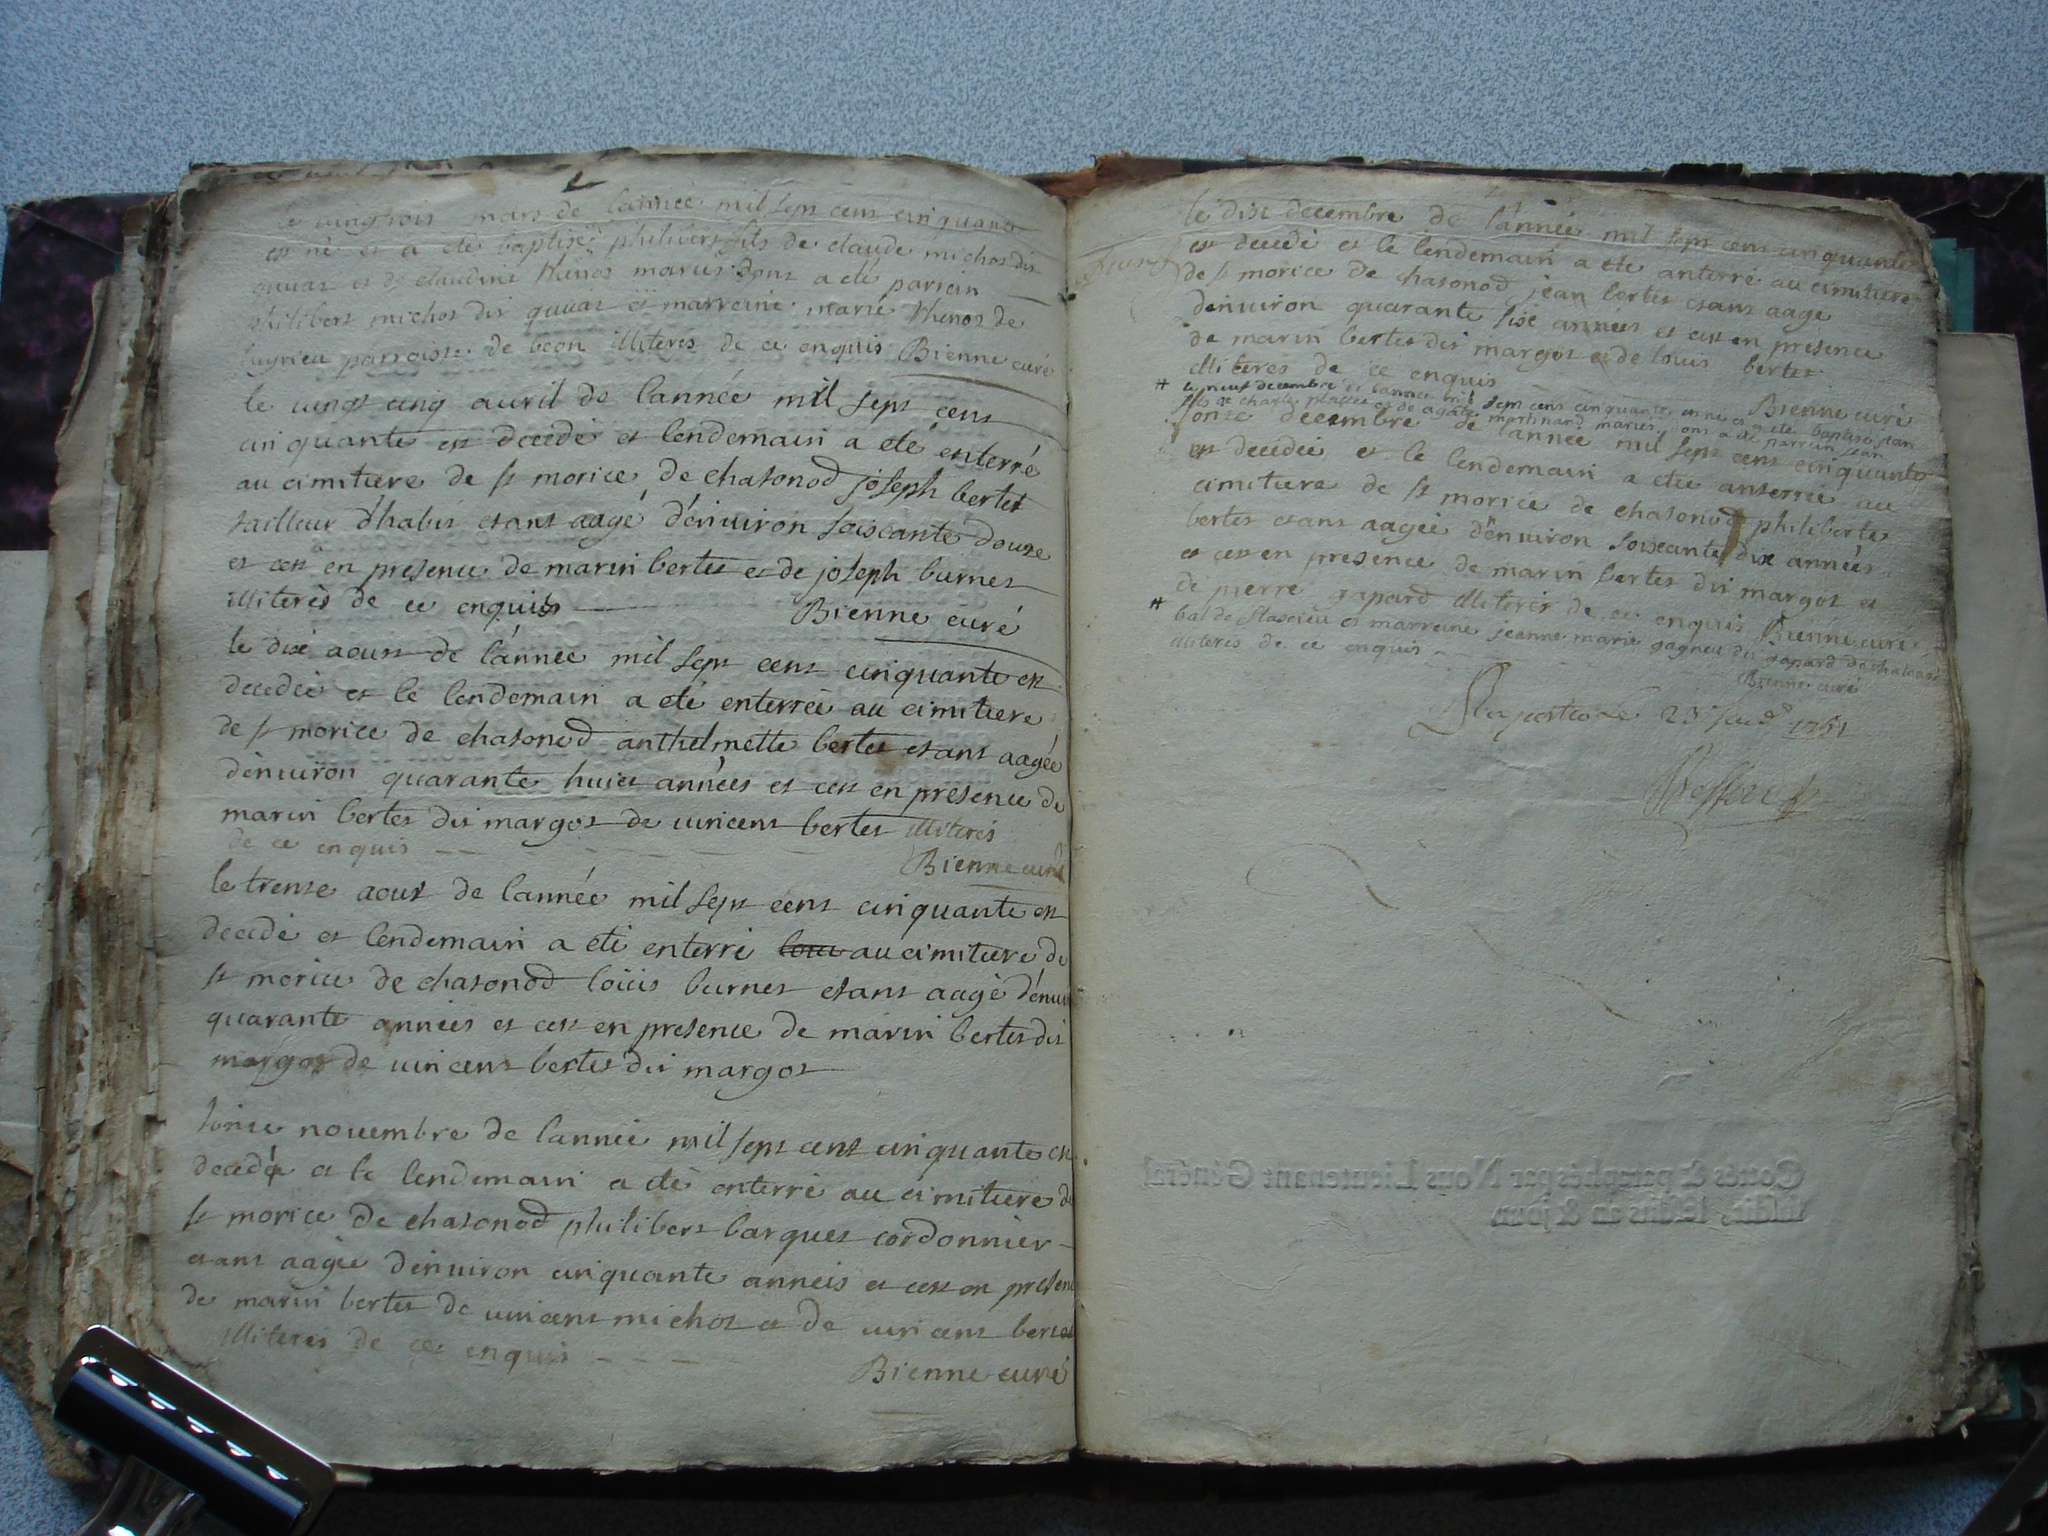 le vingtrois mars de lannéé mil sept cens cinquante
est né et a eté baptisé philibert fils de claude michot dit
quuat et de claudine thenot mariés dont a eté parrein
philibert michot dit quuat et marreine marie thenot de
lugrieu parroisse de beon illiteres de ce enquis Bienne curé
le vingt cinq auril de lannéé mil sept cens
cinquante est decedé et lendemain a eté enterré
au cimitiere de st morice de chasonod joseph bertet
tailleur d'habis etant aagé d'enuiron soiscante douze
et cest en presence de marin bertet et de joseph burnet
illiterés de ce enquis Bienne curé
le dix aoust de l'année mil sept cens cinquante est
decedée et le lendemain a eté enterrée au cimitiere
de st morice de chasonod anthelmette bertet etant aagée
d'enuiron quarante huict années et cest en presence de
marin bertet dit margot de vincent bertet illiterés
de ce enquis Bienne curé
le trente aout de lannéé mil sept cens cinquante est
decedé et lendemain a eté enterré au cimitiere de
st morice de chasonod loüis burnet etant aagé d'enui
quarante années et cest en presence de marin bertet dit
margot de vincent bertet dit margot
l'onze nouembre de lannéé mil sept cens cinquante est
decedé et le lendemain a eté enterré au cimitiere de
st morice de chasonod philibert barquet cordonnier
etant aagée d'enuiron cinquante années et cest en presence
de marin bertet de vincent michot et de vincent bertet
illiterés de ce enquis Bienne curé
le dix decembre de l'année mil sept cens cinquante
est decedé et le lendemain a eté anterré au cimitiere
de st morice de chasonod jean bertet etant aagé
d'enuiron quarante sixe années et cest en presence
de marin bertet dit margot et de louis bertet
illiteres de ce enquis Bienne curé
# le neuf decembre de lannee mil sept cens cinquante est ne et a eté baptisé jean
fils de charle et de agathe martinand mariés dont a eté parrein jean
l'onze decembre de l'annéé mil sept cens cinquante
est decedée et le lendemain a etée anterrée au
cimitiere de st morice de chasonod philiberte
bertet etant aagée d'enuiron soixante dix années
et cest en presence de marin bertet dit margot et
de pierre gapard illiterés de ce enquis Bienne curé
# bal de et marreine jeanne marie gagneu dit gapard de chasonod
illiterés de ce enquis
Bienne curé
1751
Cottés & paraphés par Nous Lieutenant Général
susdit, lesdits an & jour